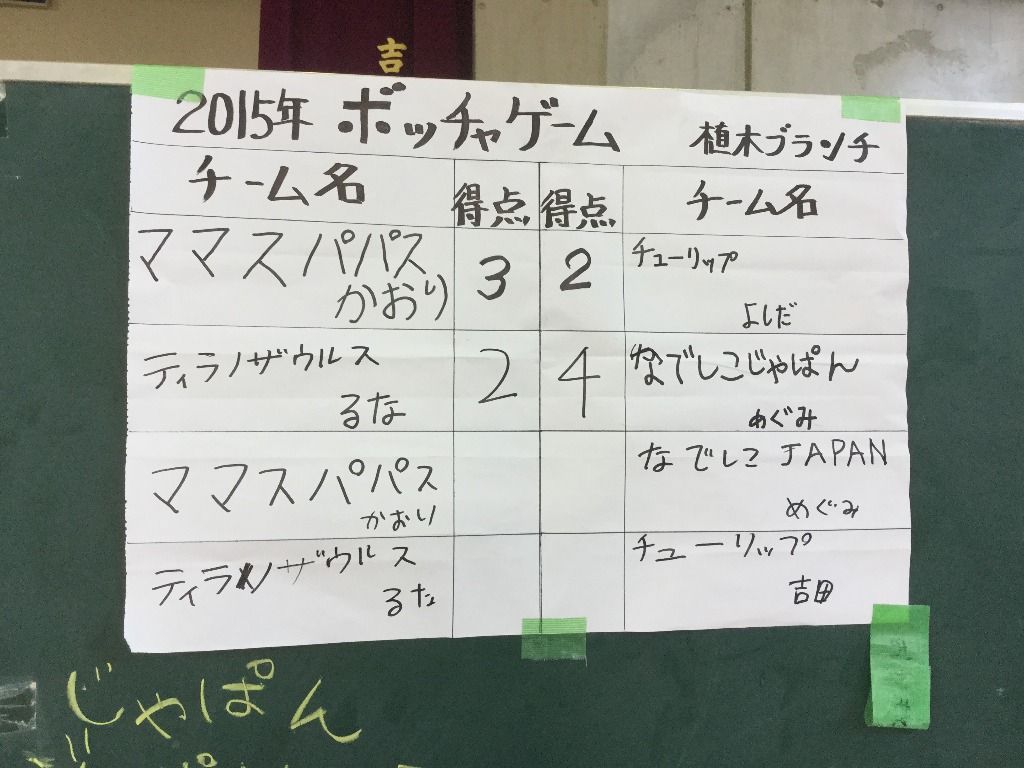 吉
2015年 ボッチャゲーム 植木ブランチ
チーム名 得点 得点 チーム名
ママスパパス 3 2 チューリップ
かおり よしだ
ティラノザウルス 2 4 なでしこじゃぱん
るな めぐみ
ママスパパス なでしこJAPAN
かおり めぐみ
ティラノザウルス チューリップ
るな 吉田
じゃぱん